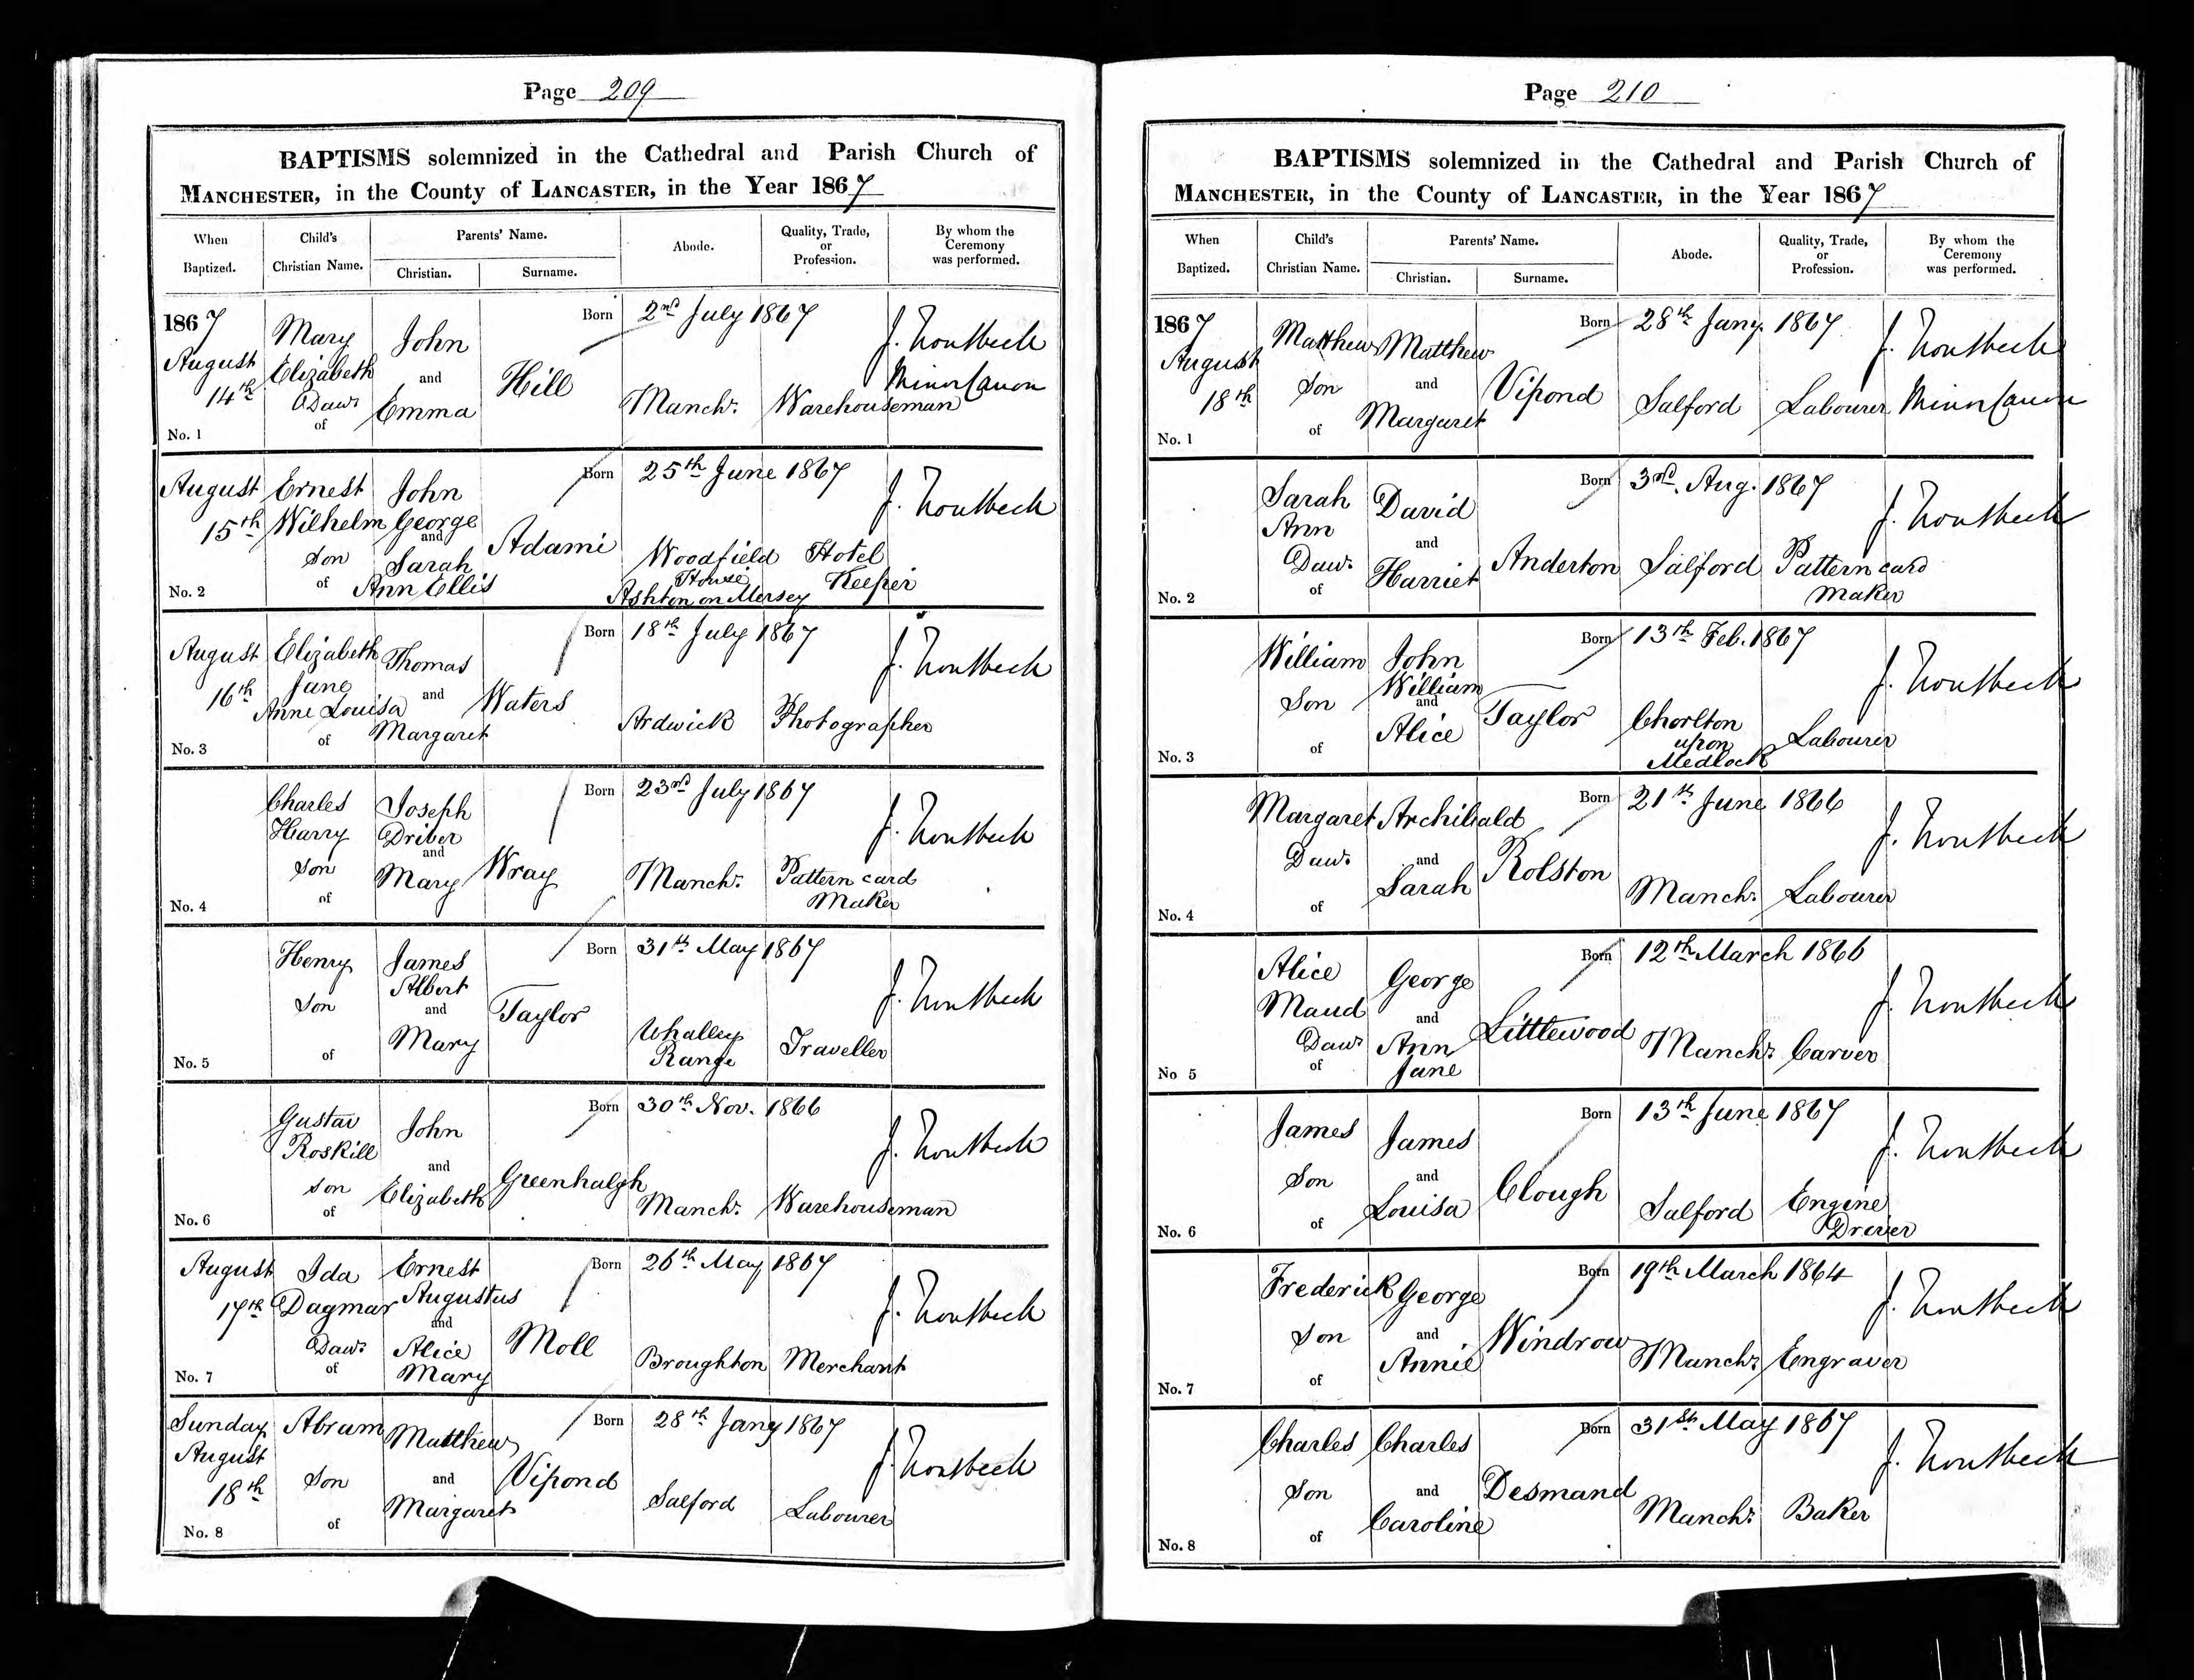 Page 209
BAPTISMS solemnized in the Cathedral and Parish Church of
MANCHESTER, in the County of LANCASTER, in the Year 1867
When Baptized.
Child's Christian Name.
Parents' Name.
Christian.
Surname.
Abode.
Quality, Trade, or Profession.
By whom the Ceremony was performed.
1867
August
14th
No. 1
Mary
Elizabeth
Dawr
of
John
and
Emma
Hill
Born 2nd July 1867
Manchr.
Warehouseman
J. Troutbeck
Minor Canon
August
15th
No. 2
Ernest
Wilhelm
Son
of
John
George
and
Sarah
Ann Ellis
Adami
Born 25th June 1867
Woodfield
House
Ashton on Mersey
Hotel
Keeper
J. Troutbeck
August
16th
No. 3
Elizabeth
Jane
Anne Louisa
of
Thomas
and
Margaret
Waters
Born 18th July 1867
Ardwick
Photographer
J. Troutbeck
No. 4
Charles
Harry
Son
of
Joseph
Driber
and
Mary
Wray
Born 23rd July 1867
Manchr.
Pattern card
Maker
J. Troutbeck
No. 5
Henry
Son
of
James
Albert
and
Mary
Taylor
Born 31th May 1867
Whalley
Range
Traveller
J. Troutbeck
No. 6
Gustav
Roskill
Son
of
John
and
Elizabeth
Greenhalgh
Born 30th Nov. 1866
Manchr.
Warehouseman
J. Troutbeck
August
17th
No. 7
Ida
Dagmar
Dawr
of
Ernest
Augustus
and
Alice
Mary
Moll
Born 26th May 1867
Broughton
Merchant
J. Troutbeck
Sunday
August
18th
No. 8
Abram
Son
of
Matthew
and
Margaret
Vipond
Born 28th Jany 1867
Salford
Labourer
J. Troutbeck
Page 210
BAPTISMS solemnized in the Cathedral and Parish Church of
MANCHESTER, in the County of LANCASTER, in the Year 1867
When Baptized.
Child's Christian Name.
Parents' Name.
Christian.
Surname.
Abode.
Quality, Trade, or Profession.
By whom the Ceremony was performed.
1867
August
18th
No. 1
Matthew
Son
of
Matthew
and
Margaret
Vipond
Born 28th Jany. 1867
Salford
Labourer
J. Troutbeck
Minor Canon
No. 2
Sarah
Ann
Dawr
of
David
and
Harriet
Anderton
Born 3rd. Aug. 1867
Salford
Pattern card
Maker
J. Troutbeck
No. 3
William
Son
of
John
William
and
Alice
Taylor
Born 13th Feb. 1867
Chorlton
upon
Medlock
Labourer
J. Troutbeck
No. 4
Margaret
Dawr
of
Archibald
and
Sarah
Rolston
Born 21th June 1866
Manchr.
Labourer
J. Troutbeck
No 5
Alice
Maud
Dawr
of
George
and
Ann
Jane
Littlewood
Born 12th March 1866
Manchr.
Carver
J. Troutbeck
No. 6
James
Son
of
James
and
Louisa
Clough
Born 13th June 1867
Salford
Engine
Driver
J. Troutbeck
No. 7
Frederick
Son
of
George
and
Annie
Windrow
Born 19th March 1864
Manchr.
Engraver
J. Troutbeck
No. 8
Charles
Son
of
Charles
and
Caroline
Desmand
Born 31st May 1867
Manchr.
Baker
J. Troutbeck